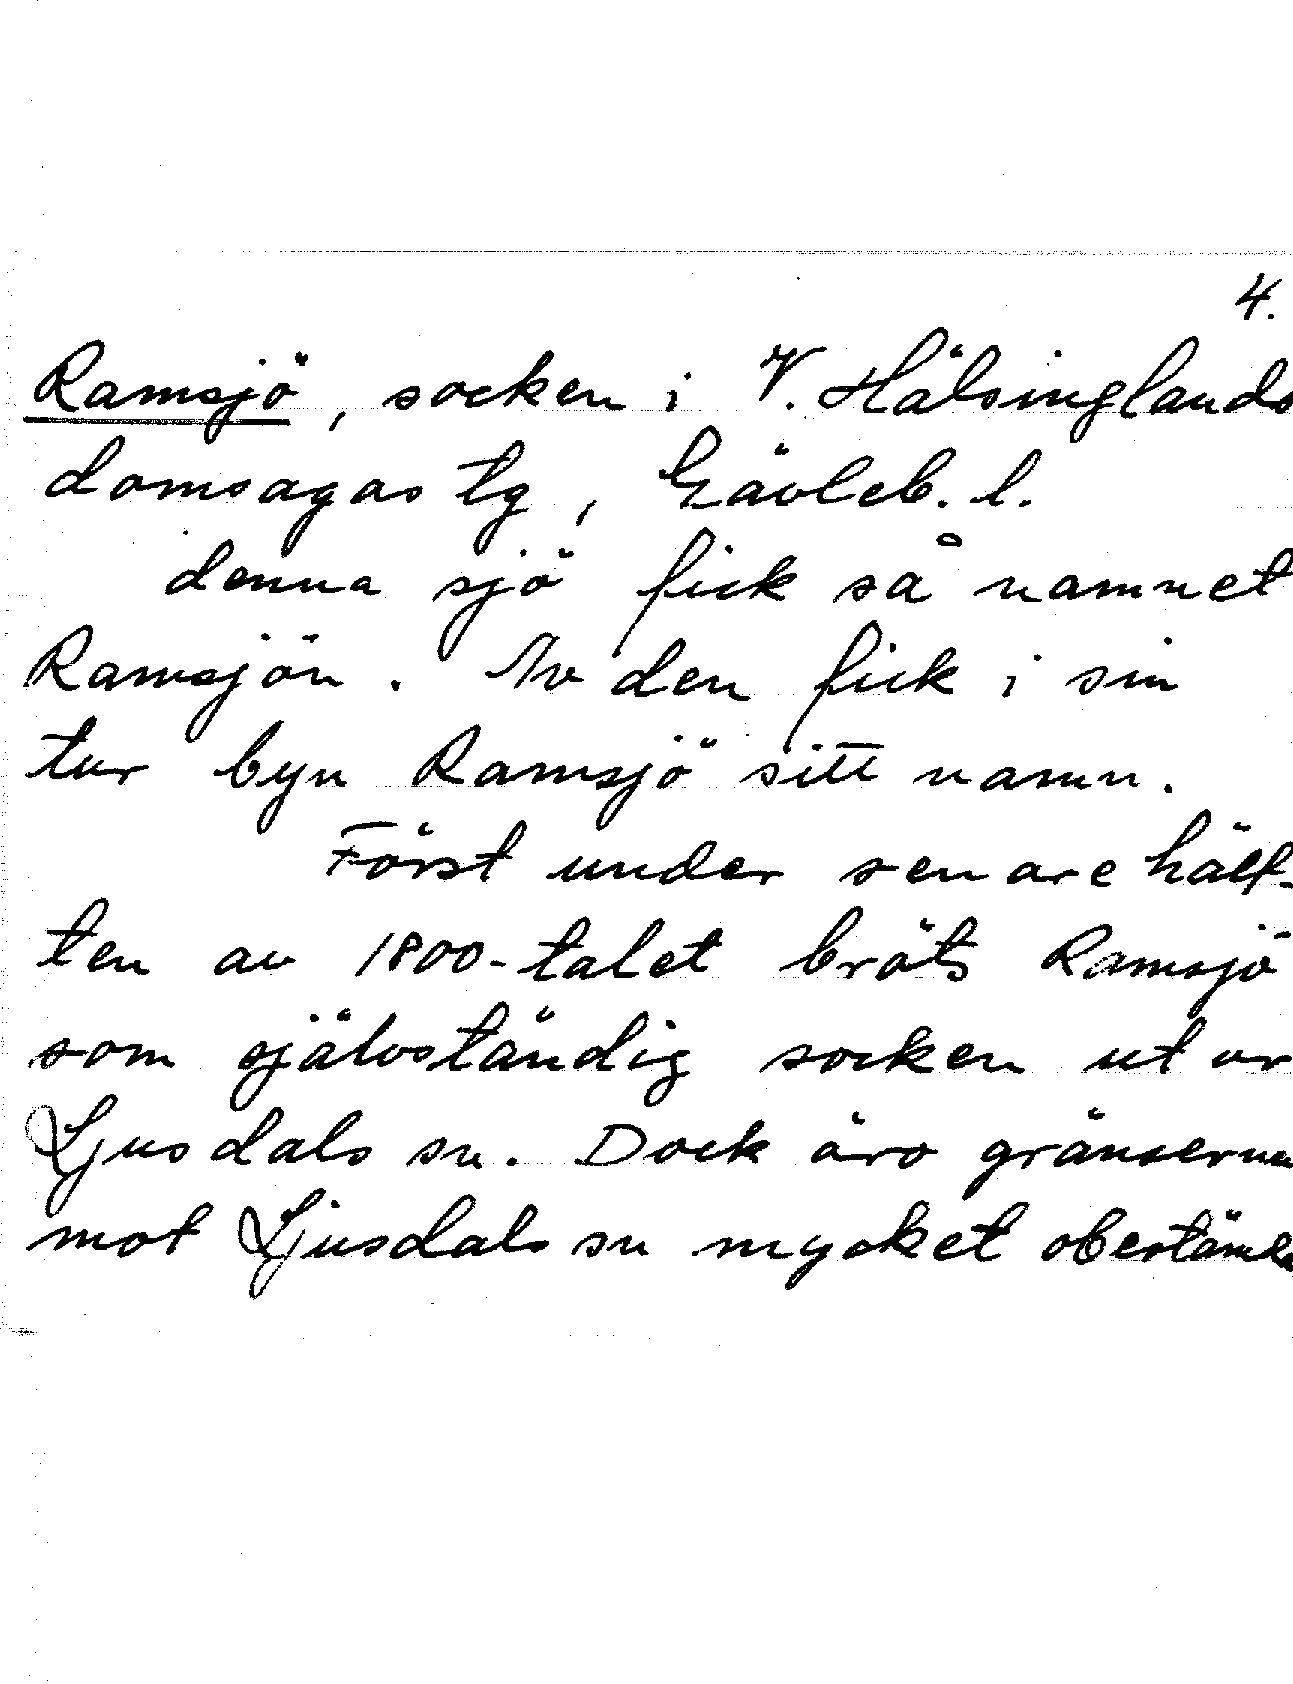 4.
Ramsjö, socken i V. Hälsinglands
domsagas tg, Gävleb. l.
denna sjö fick så namnet
Ramsjön. Av den fick i sin
tur byn Ramsjö sitt namn.
Först under senare hälf-
ten av 1800-talet bröts Ramsjö
som självständig socken ut ur
Ljusdals sn. Dock äro gränserna
mot Ljusdals sn mycket obestämda